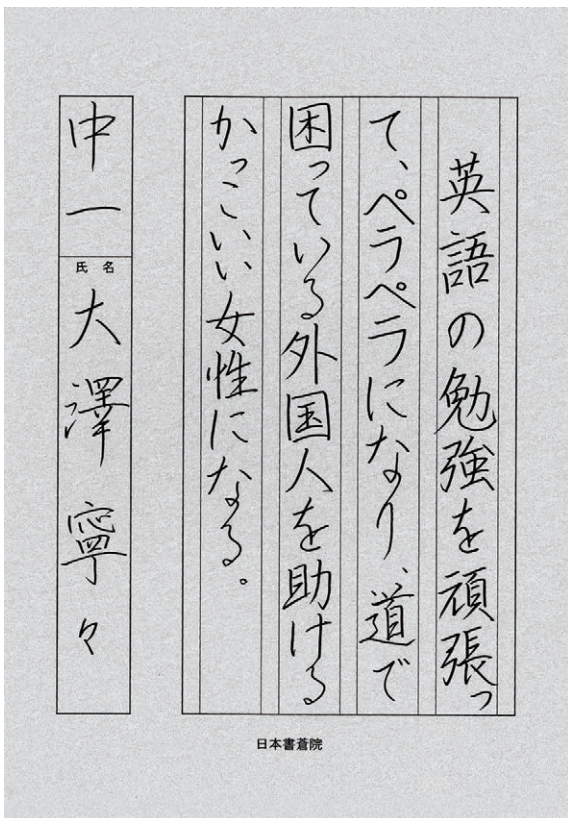 英語の勉強を頑張っ
て、ペラペラになり、道で
困っている外国人を助ける
かっこいい女性になる。
中一
氏名
大澤寧々
日本書蒼院